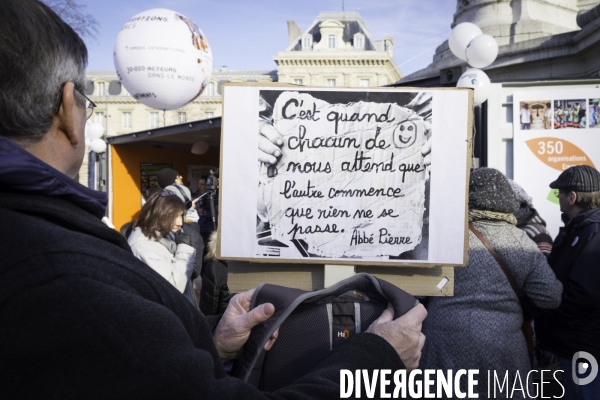 30·000 ACTEURS
DANS LE MONDE
C'est quand
chacun de
nous attend que
l'autre commence
que rien ne se
passe.
Abbé Pierre
350
ORGANISATION
DIVERGENCE IMAGES